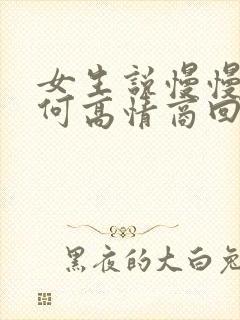 女生说慢慢
何高情商回
黑夜的大白兔